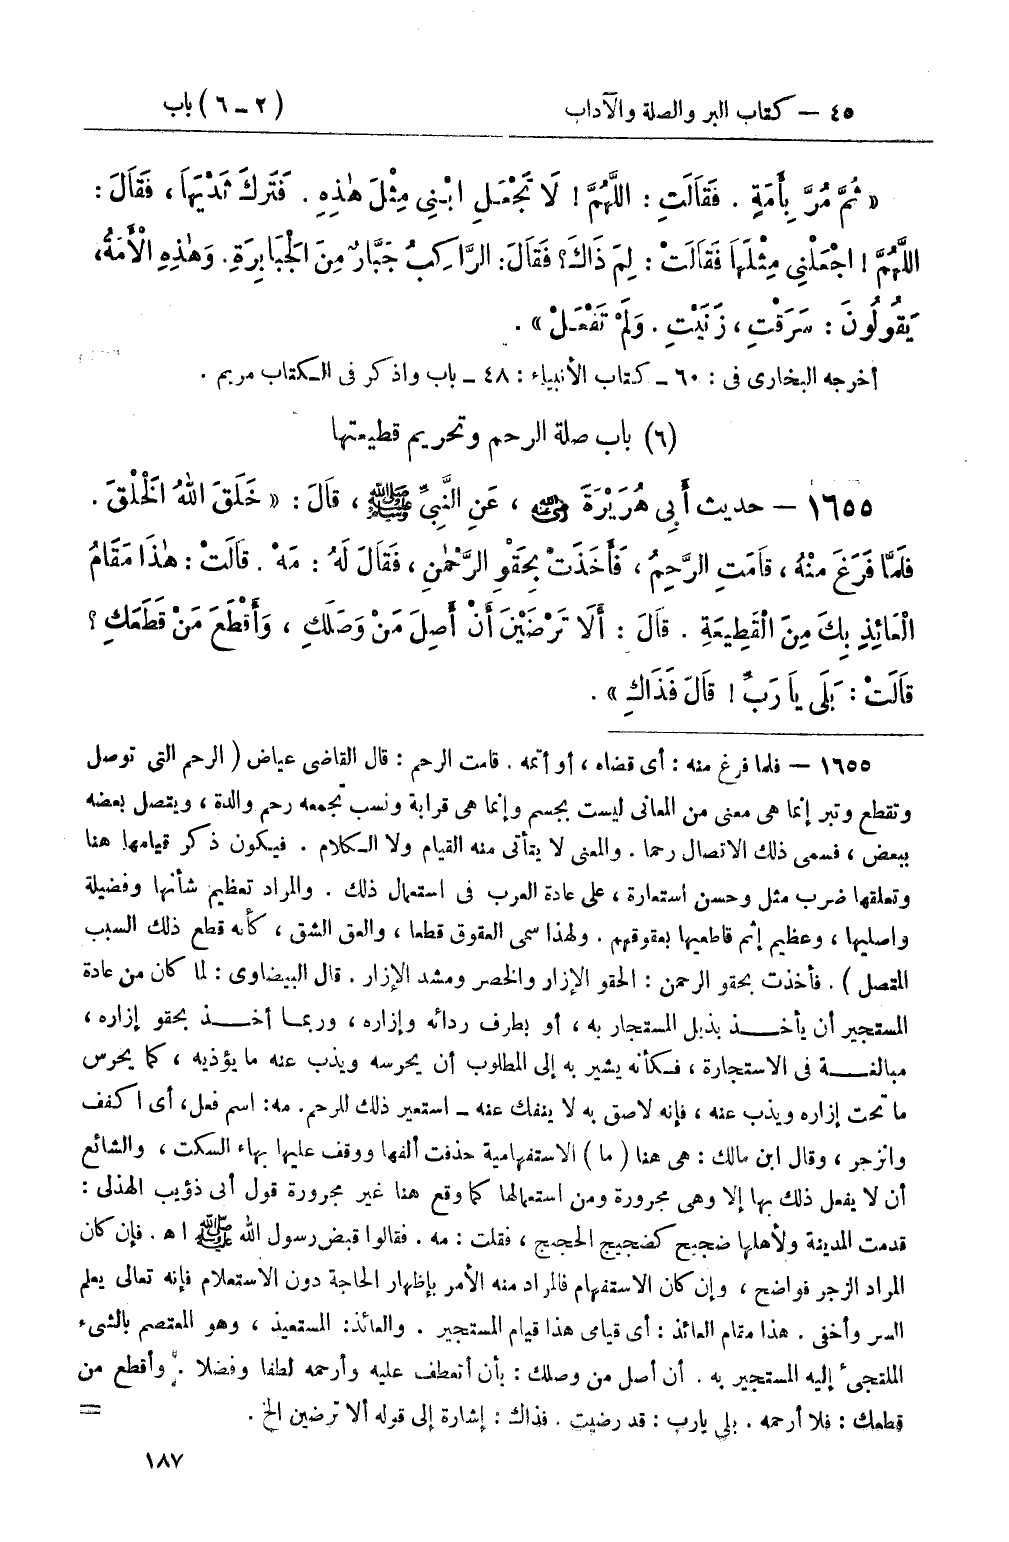 ٤٥ – كتاب البر والصلة والآداب (٢ – ٦) باب
« ثُمَّ مُرَّ بِأَمَةٍ . فَقَالَتِ : اللَّهُمَّ ! لَا تَجْعَلِ ابْنِي مِثْلَ هٰذِهِ . فَتَرَكَ ثَدْيَهَا ، فَقَالَ :
اللَّهُمَّ ! اجْعَلْنِي مِثْلَهَا فَقَالَتْ : لِمَ ذَاكَ؟ فَقَالَ: الرَّاكِبُ جَبَّارٌ مِنَ الْجَبَابِرَةِ. وَهٰذِهِ الْأَمَةُ،
يَقُولُونَ : سَرَقْتِ ، زَنَيْتِ . وَلَمْ تَفْعَلْ » .
أخرجه البخارى فى : ٦٠ – كتاب الأنبياء : ٤٨ – باب واذكر فى الكتاب مريم .
(٦) باب صلة الرحم وتحريم قطيعتها
١٦٥٥ – حديث أَبِى هُرَيْرَةَ رضي الله عنه ، عَنِ النَّبِيِّ ﷺ ، قَالَ : « خَلَقَ اللهُ الْخَلْقَ .
فَلَمَّا فَرَغَ مِنْهُ ، قَامَتِ الرَّحِمُ ، فَأَخَذَتْ بِحَقْوِ الرَّحْمٰنِ ، فَقَالَ لَهُ : مَهْ . قَالَتْ : هٰذَا مَقَامُ
الْعَائِذِ بِكَ مِنَ الْقَطِيعَةِ . قَالَ : أَلَا تَرْضَيْنَ أَنْ أَصِلَ مَنْ وَصَلَكِ ، وَأَقْطَعَ مَنْ قَطَعَكِ ؟
قَالَتْ : بَلَى يَا رَبِّ ! قَالَ فَذَاكِ » .
١٦٥٥ – فلما فرغ منه : أى قضاه ، أو أتمه . قامت الرحم : قال القاضى عياض ( الرحم التى توصل
وتقطع وتبر إنما هى معنى من المعانى ليست بجسم وإنما هى قرابة ونسب تجمعه رحم والدة ، ويتصل بعضه
ببعض ، فسمى ذلك الاتصال رحما . والمعنى لا يتأتى منه القيام ولا الكلام . فيكون ذكر قيامها هنا
وتعلقها ضرب مثل وحسن استعارة ، على عادة العرب فى استعمال ذلك . والمراد تعظيم شأنها وفضيلة
واصليها ، وعظيم إثم قاطعيها بعقوقهم . ولهذا سمى العقوق قطعا ، والعق الشق ، كأنه قطع ذلك السبب
المتصل ) . فأخذت بحقو الرحمن : الحقو الإزار والخصر ومشد الإزار . قال البيضاوى : لما كان من عادة
المستجير أن يأخذ بذيل المستجار به ، أو بطرف ردائه وإزاره ، وربما أخذ بحقو إزاره ،
مبالغة فى الاستجارة ، فكأنه يشير به إلى المطلوب أن يحرسه ويذب عنه ما يؤذيه ، كما يحرس
ما تحت إزاره ويذب عنه ، فإنه لاصق به لا ينفك عنه – استعير ذلك للرحم. مه: اسم فعل، أى اكفف
وانزجر ، وقال ابن مالك : هى هنا ( ما ) الاستفهامية حذفت ألفها ووقف عليها بهاء السكت ، والشائع
أن لا يفعل ذلك بها إلا وهى مجرورة ومن استعمالها كما وقع هنا غير مجرورة قول أبى ذؤيب الهذلى :
قدمت المدينة ولأهلها ضجيج كضجيج الحجيج ، فقلت : مه . فقالوا قبض رسول الله ﷺ ا ه . فإن كان
المراد الزجر فواضح ، وإن كان الاستفهام فالمراد منه الأمر بإظهار الحاجة دون الاستعلام فإنه تعالى يعلم
السر وأخفى . هذا مقام العائذ : أى قيامى هذا قيام المستجير . والعائذ: المستعيذ ، وهو المعتصم بالشىء
الملتجئ إليه المستجير به . أن أصل من وصلك : بأن أتعطف عليه وأرحمه لطفا وفضلا . وأقطع من
قطعك : فلا أرحمه . بلى يارب : قد رضيت . فذاك : إشارة إلى قوله ألا ترضين الخ . =
١٨٧